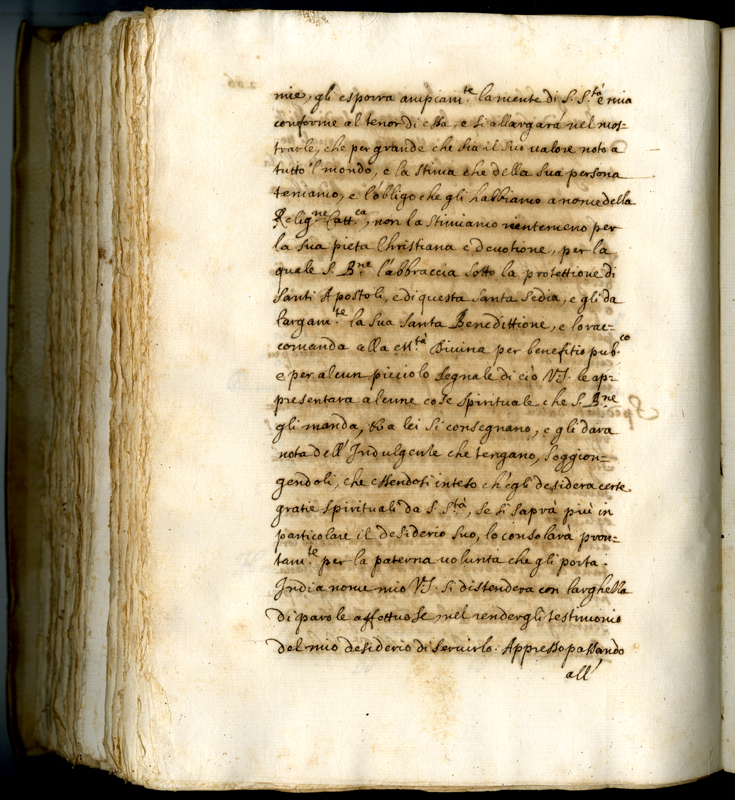 mie, gli esporra ampiam.te la mente di S. S.tà è mia
conforme al tenor di essa, e si allargarà nel mos-
trarle, che per grande che sia il suo valore noto a
tutto 'l mondo, e la stima che della sua persona
teniamo, e l'obligo che gli habbiamo a nome della
Relig.ne Catt.ca, non la stimiamo nientemeno per
la sua pieta Christiana e devotione, per la
quale S. B.ne l'abbraccia sotto la protettione di
Santi Apostoli, e di questa Santa Sedia, e gli da
largam.te la sua Santa Benedittione, e lo rac-
comanda alla M.tà Divina per benefitio pub.co
e per alcun picciolo segnale di ciò V.S. le ap-
presentarà alcune cose spirituale che S. B.ne
gli manda, & a lei si consegnano, e gli darà
nota dell' Indulgente che tengano, soggion-
gendoli, che essendosi inteso ch'egli desidera certe
gratie spirituali da S. S.tà, se si saprà più in
particolare il desiderio suo, lo consolarà pron-
tam.te per la paterna volunta che gli porta.
Indi a nome mio V.S. si distenderà con larghezza
di parole affettuose, nel rendergli testimonio
del mio desiderio di servirlo. Appresso passando
all'